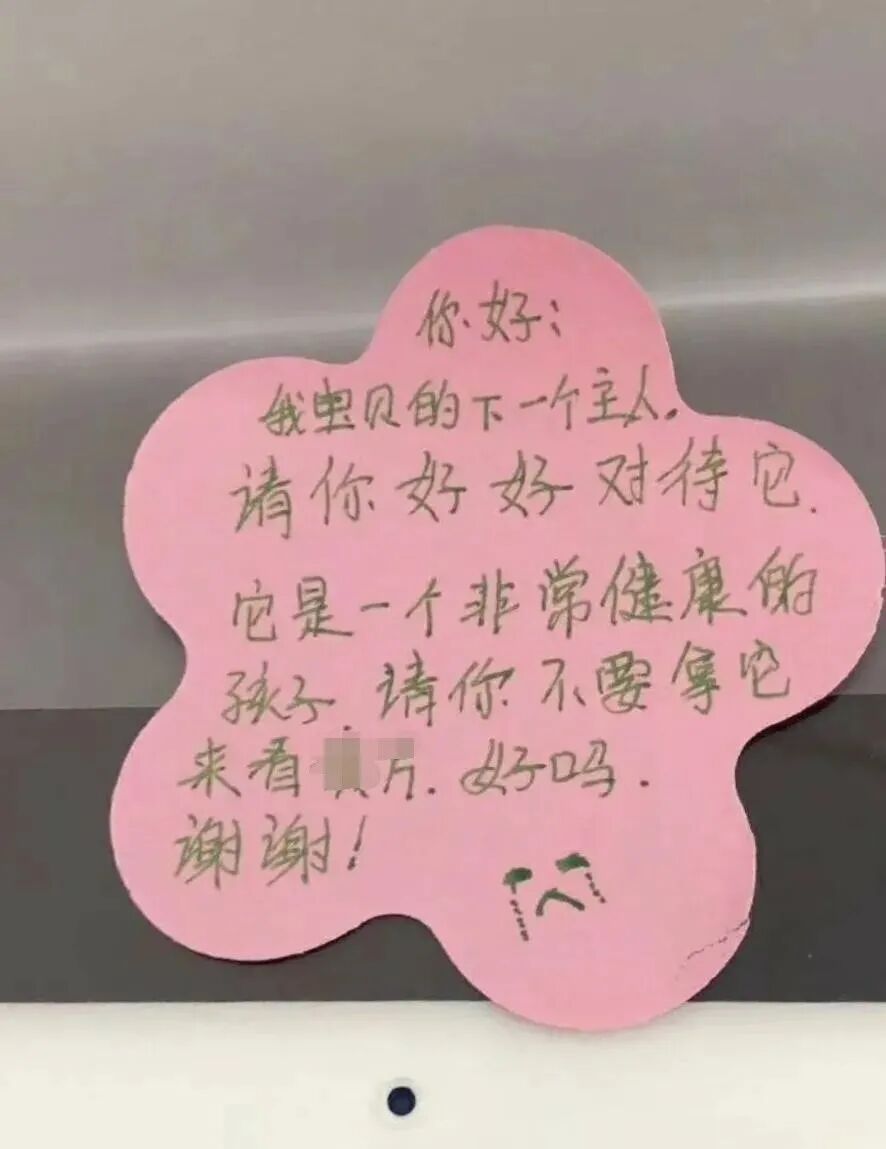 你好：
我宝贝的下一个主人.
请你好好对待它.
它是一个非常健康的
孩子.请你不要拿它
来看片.好吗.
谢谢！